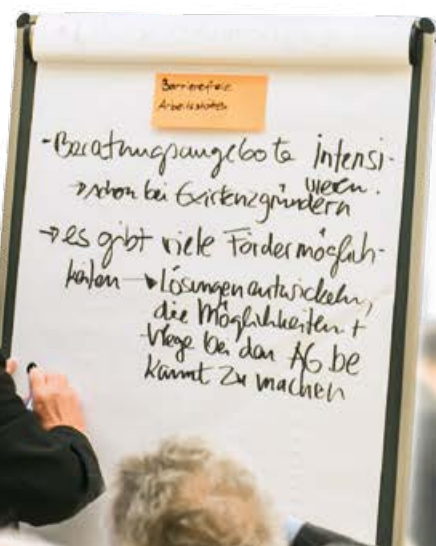 Barrierefreie
Arbeitsstätten
- Beratungsangebote intensi-
vieren.
→ schon bei Existenzgründern
→ es gibt viele Fördermöglich-
keiten → Lösungen entwickeln,
die Möglichkeiten +
Wege bei den AG be
kannt zu machen